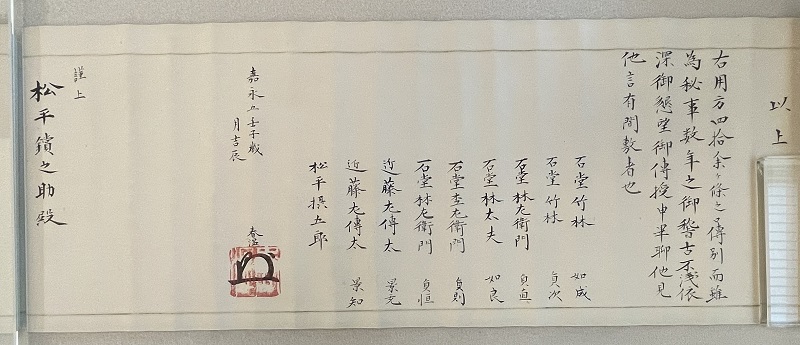 以上
右用方四拾余ケ條之傳別而雖
為秘事数年之御誓古不浅依
深御懇望御傳授申畢聊他見
他言有間敷者也
石堂竹林 如成
石堂竹林 貞次
石堂林左衛門 貞直
石堂林太夫 如良
石堂杢左衛門 貞則
石堂林左衛門 貞恒
近藤左傳太 景光
近藤左傳太 景知
松平摂五郎
嘉永五壬子歳
月吉辰
謹上
松平鎖之助殿